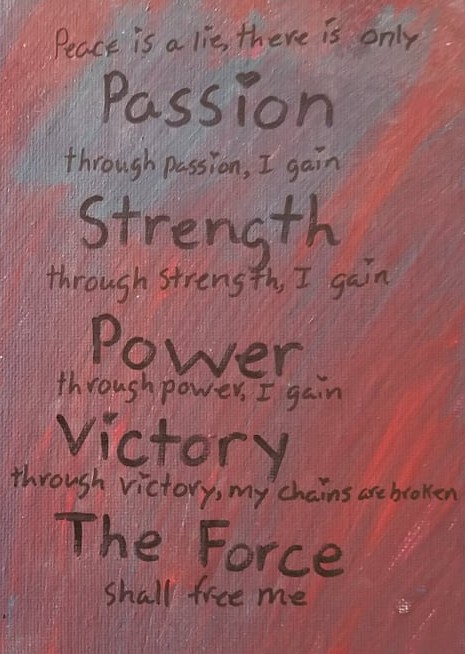 Peace is a lie, there is only
Passion
through passion, I gain
Strength
through strength, I gain
Power
through power, I gain
Victory
through victory, my chains are broken
The Force
shall free me